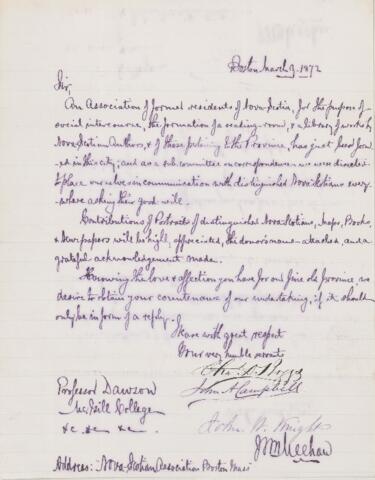 Boston March 9. 1872
Sir,
An Association of former residents of Nova Scotia, for the purpose of
social intercourse, the formation of a reading-room, & a library of works by
Nova Scotian Authors, & of those pertaining to the Province, has just been form-
ed in this city, and as a sub committee on correspondence we were directed
to place ourselves in communication with distinguished Nova Scotians every-
where asking their good will.
Contributions of Portraits of distinguished Nova Scotians, maps, Books,
& News papers will be highly appreciated, the donors name attached, and a
grateful acknowledgement made.
Knowing the love & affection you have for our fine old Province, we
desire to obtain your countenance of our undertaking, if it should
only be in form of a reply.
I have with great respect
Your very humble servants
John A Campbell
Professor Dawson
McGill College
&c. &c. &c.
John W. Knight
Address: Nova-Scotian Association Boston Mass